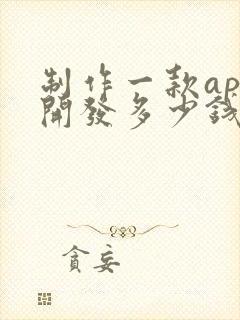 制作一款ap
開發多少錢
貪妄